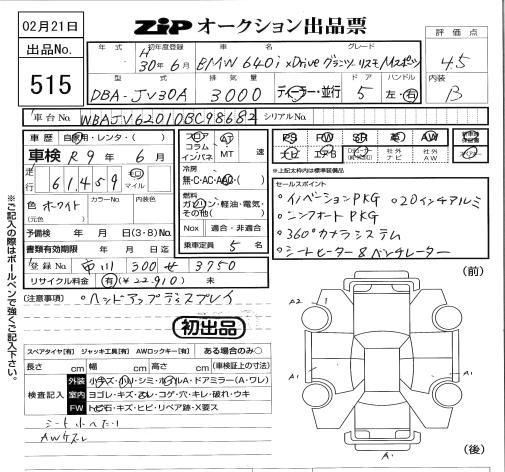 02月21日
ZIP オークション出品票
出品No.
515
評価点
4.5
内装
B
年式 初年度登録 車名 グレード
H 30年6月 BMW 640i xDrive グランツーリスモ Mスポーツ
型式 排気量 ドア ハンドル
DBA-JV30A 3000 ディーラー・並行 5 左・右
車台No. WBAJV62010BC98682 シリアルNo.
車歴 自家用・レンタ・( )
車検 R9年6月
走行 61,459 キロ マイル
色 ホワイト (元色) カラーNo. 内装色
予備検 年 月 日(3・8)No.
書類有効期限 年 月 日迄
登録No. 市川 300 せ 3750
リサイクル料金 有(¥22,910) 未
フロア コラム インパネ AT MT 速
冷房 無・C・AC・AAC・( )
燃料 ガソリン・軽油・電気・その他( )
Nox 適合・非適合
乗車定員 5 名
PS PW SR 革 AW
ナビ エアB 社外ナビ 社外AW
※上記太枠内は標準装備品
セールスポイント
・イノベーションPKG ・20インチアルミ
・コンフォートPKG
・360°カメラシステム
・シートヒーター&ベンチレーター
(注意事項) ・ヘッドアップディスプレイ
初出品
スペアタイヤ[有] ジャッキ工具[有] AWロックキー[有] ある場合のみ○
長さ cm 幅 cm 高さ cm (車検証上の寸法)
検査記入
外装 小キズ・小凹・シミ・ルーフA・ドアミラー(A・ワレ)
室内 ヨゴレ・キズ・スレ・コゲ・穴・キレ・破れ・ウキ
FW トビ石・キズ・ヒビ・リペア跡・X要ス
シート小へたり
AWキズ
(前)
A2
1
A1
A1
A1
(後)
※ご記入の際はボールペンで強くご記入下さい。